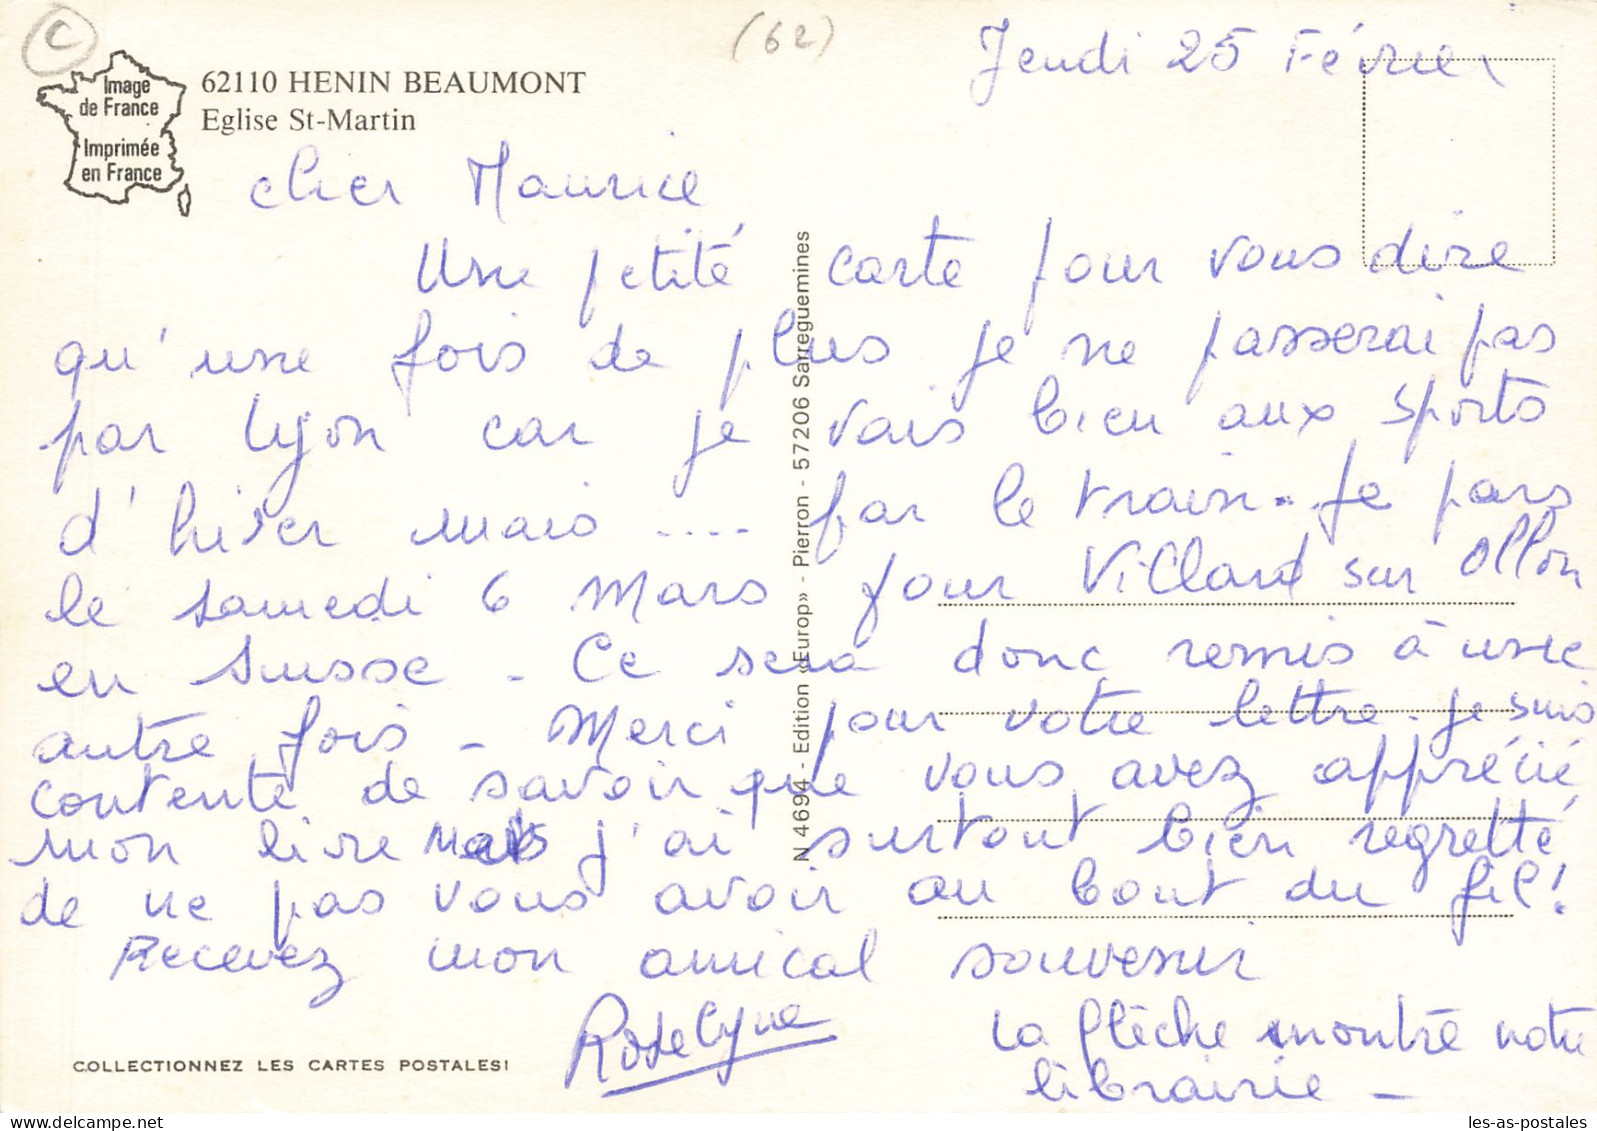 C
(62)
Jeudi 25 Février
Image
de France
Imprimée
en France
62110 HENIN BEAUMONT
Eglise St-Martin
cher Maurice
Une petite carte pour vous dire
qu'une fois de plus je ne passerai pas
par Lyon car je vais bien aux sports
d'hiver mais .... par le train. Je pars
le samedi 6 Mars pour Villard sur Ollon
en Suisse - Ce sera donc remis à une
autre fois - Merci pour votre lettre. Je suis
contente de savoir que vous avez apprécié
mon livre Mais j'ai surtout bien regretté
de ne pas vous avoir au bout du fil!
Recevez mon amical souvenir
Roselyne
La flèche montre notre
librairie -
N 4694 - Edition «Europ» - Pierron - 57206 Sarreguemines
COLLECTIONNEZ LES CARTES POSTALES!
les-as-postales